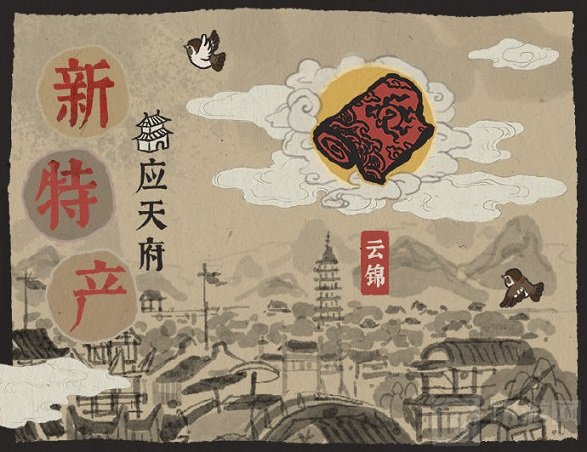 新特产
应天府
云锦